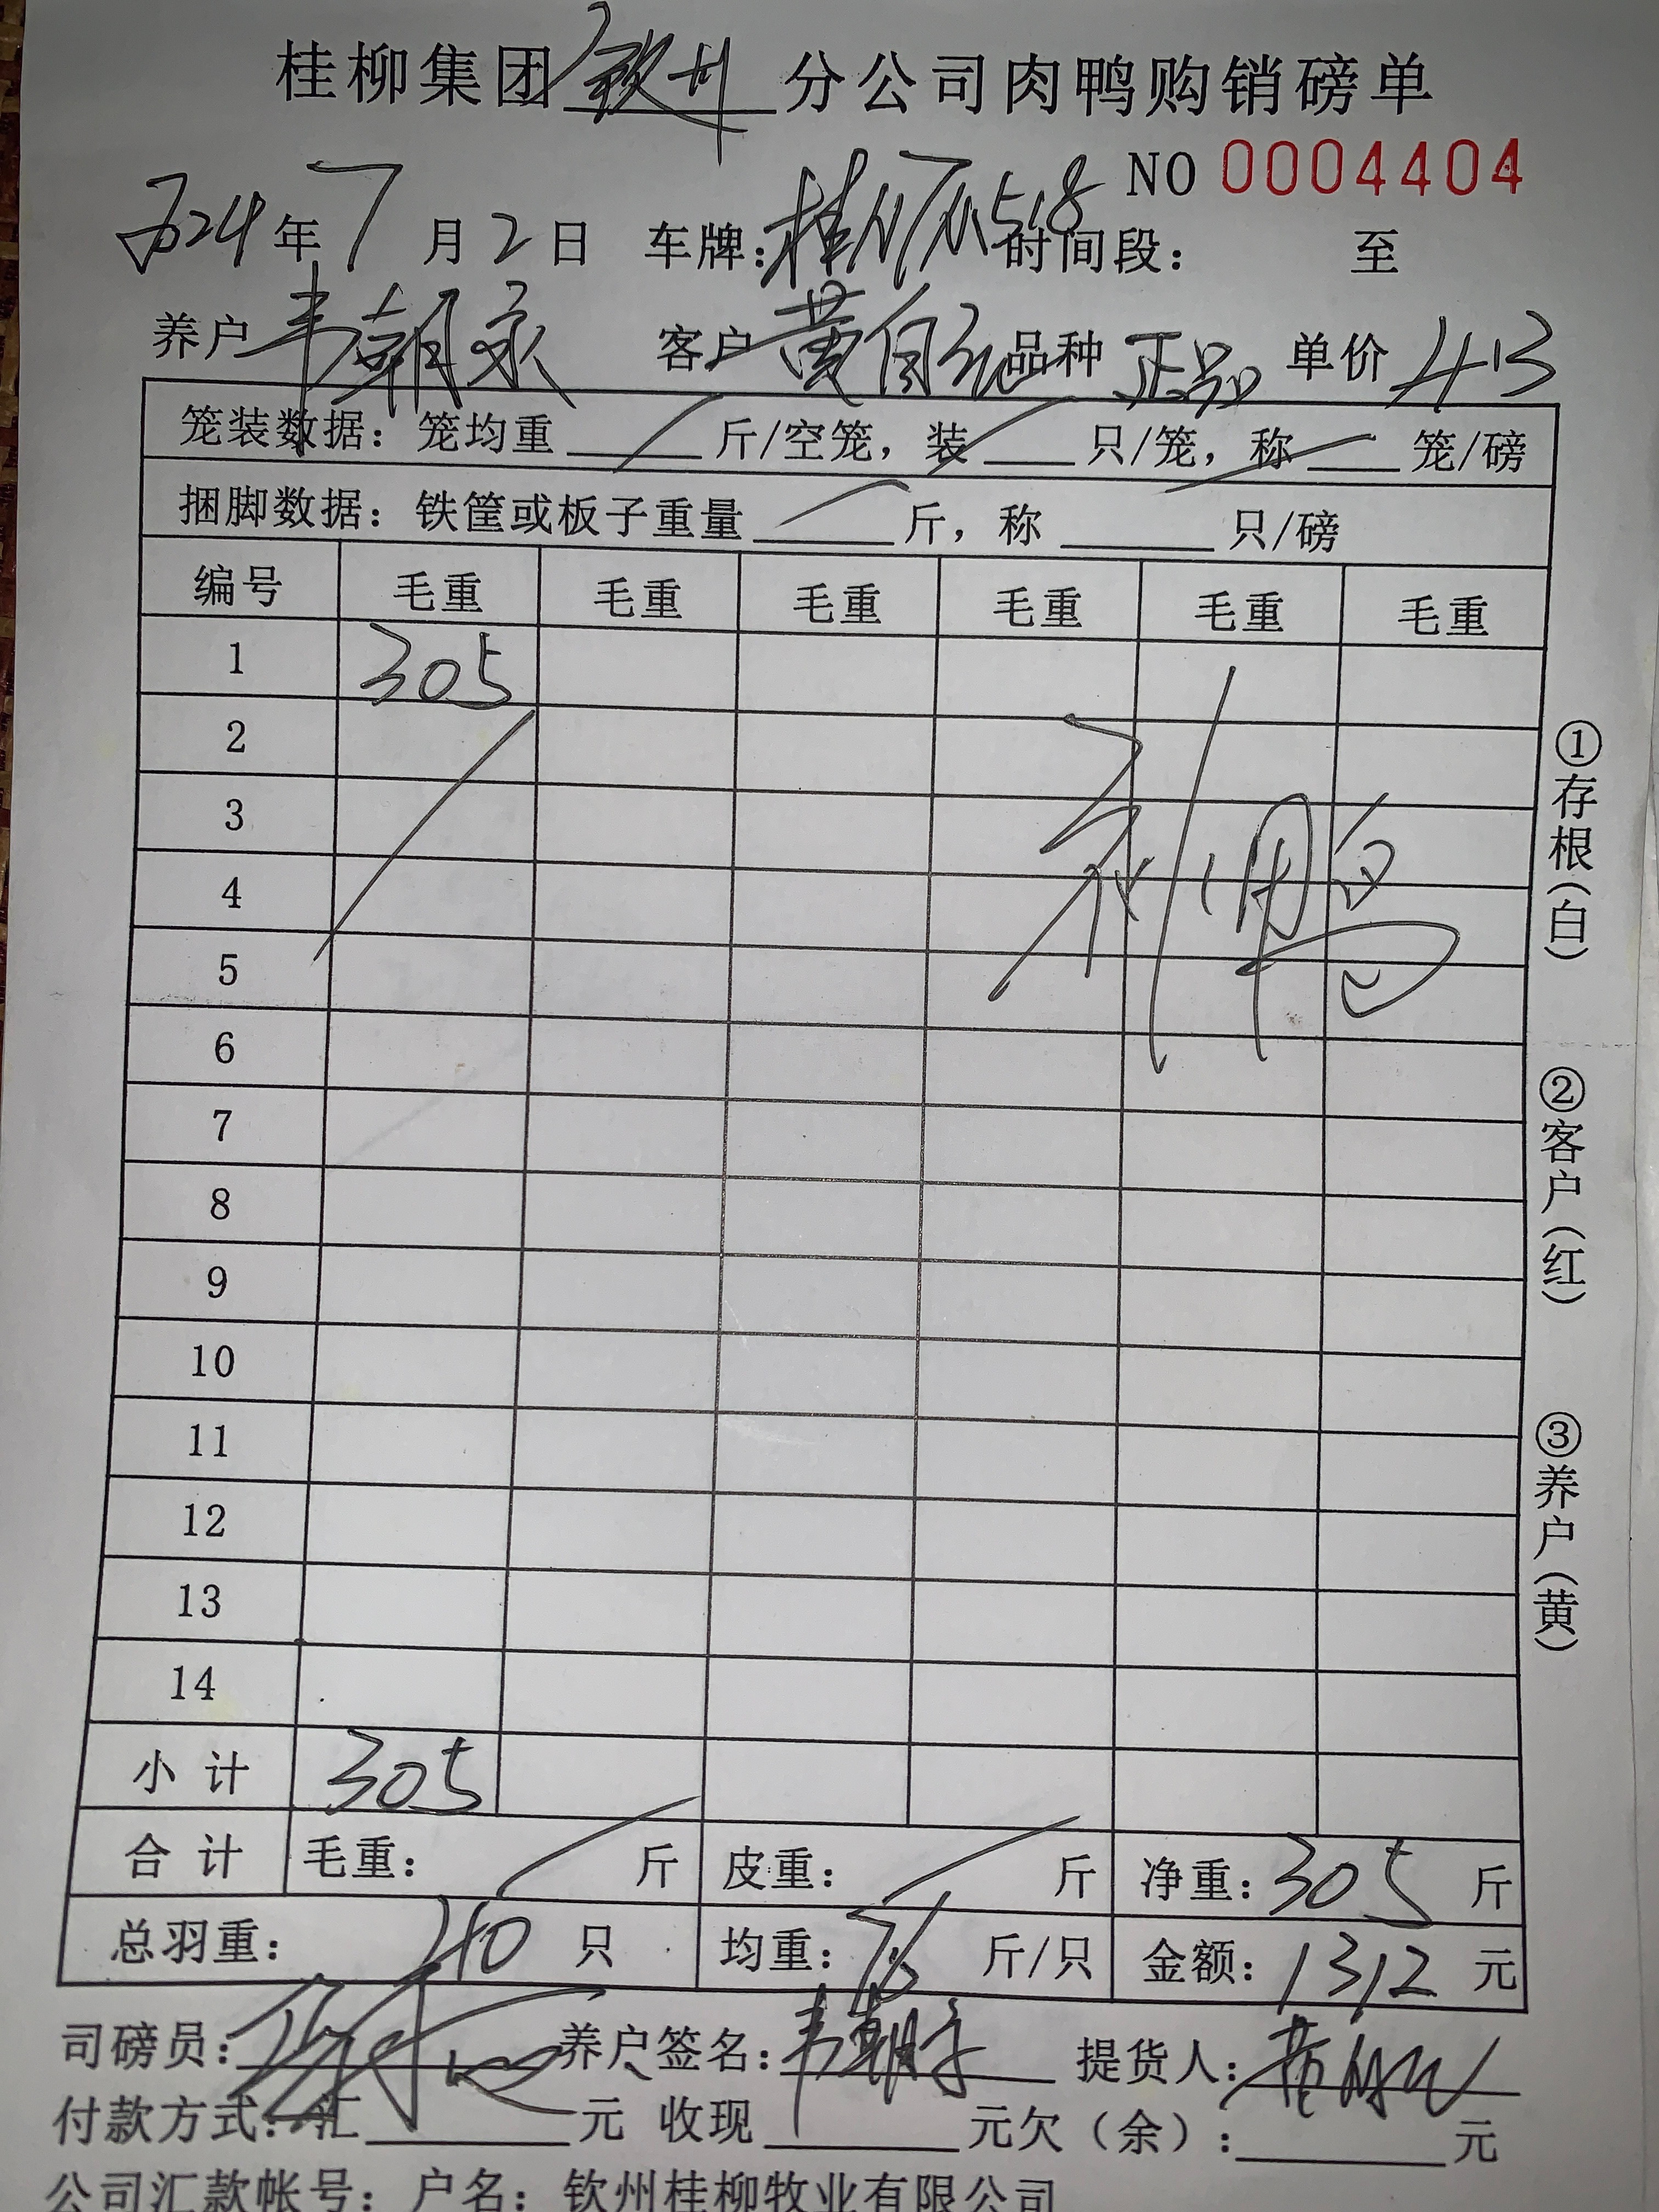 桂柳集团钦州分公司肉鸭购销磅单
NO 0004404
2024年7月2日 车牌:桂 518 时间段: 至
养户 韦朝 客户 黄 品种 正品 单价 4.3
笼装数据: 笼均重 斤/空笼, 装 只/笼, 称 笼/磅
捆脚数据: 铁筐或板子重量 斤, 称 只/磅
编号 毛重 毛重 毛重 毛重 毛重 毛重
1 305
2
3
4
5
6
7
8
9
10
11
12
13
14
小计 305
合计 毛重: 斤 皮重: 斤 净重: 305 斤
总羽重: 40 只 均重: 斤/只 金额: 1312 元
司磅员: 养户签名: 韦朝 提货人: 黄
付款方式: 汇 元 收现 元欠(余): 元
公司汇款帐号: 户名: 钦州桂柳牧业有限公司
①存根(白)
②客户(红)
③养户(黄)